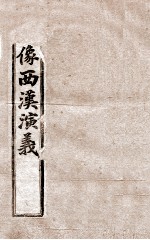 像西漢演義